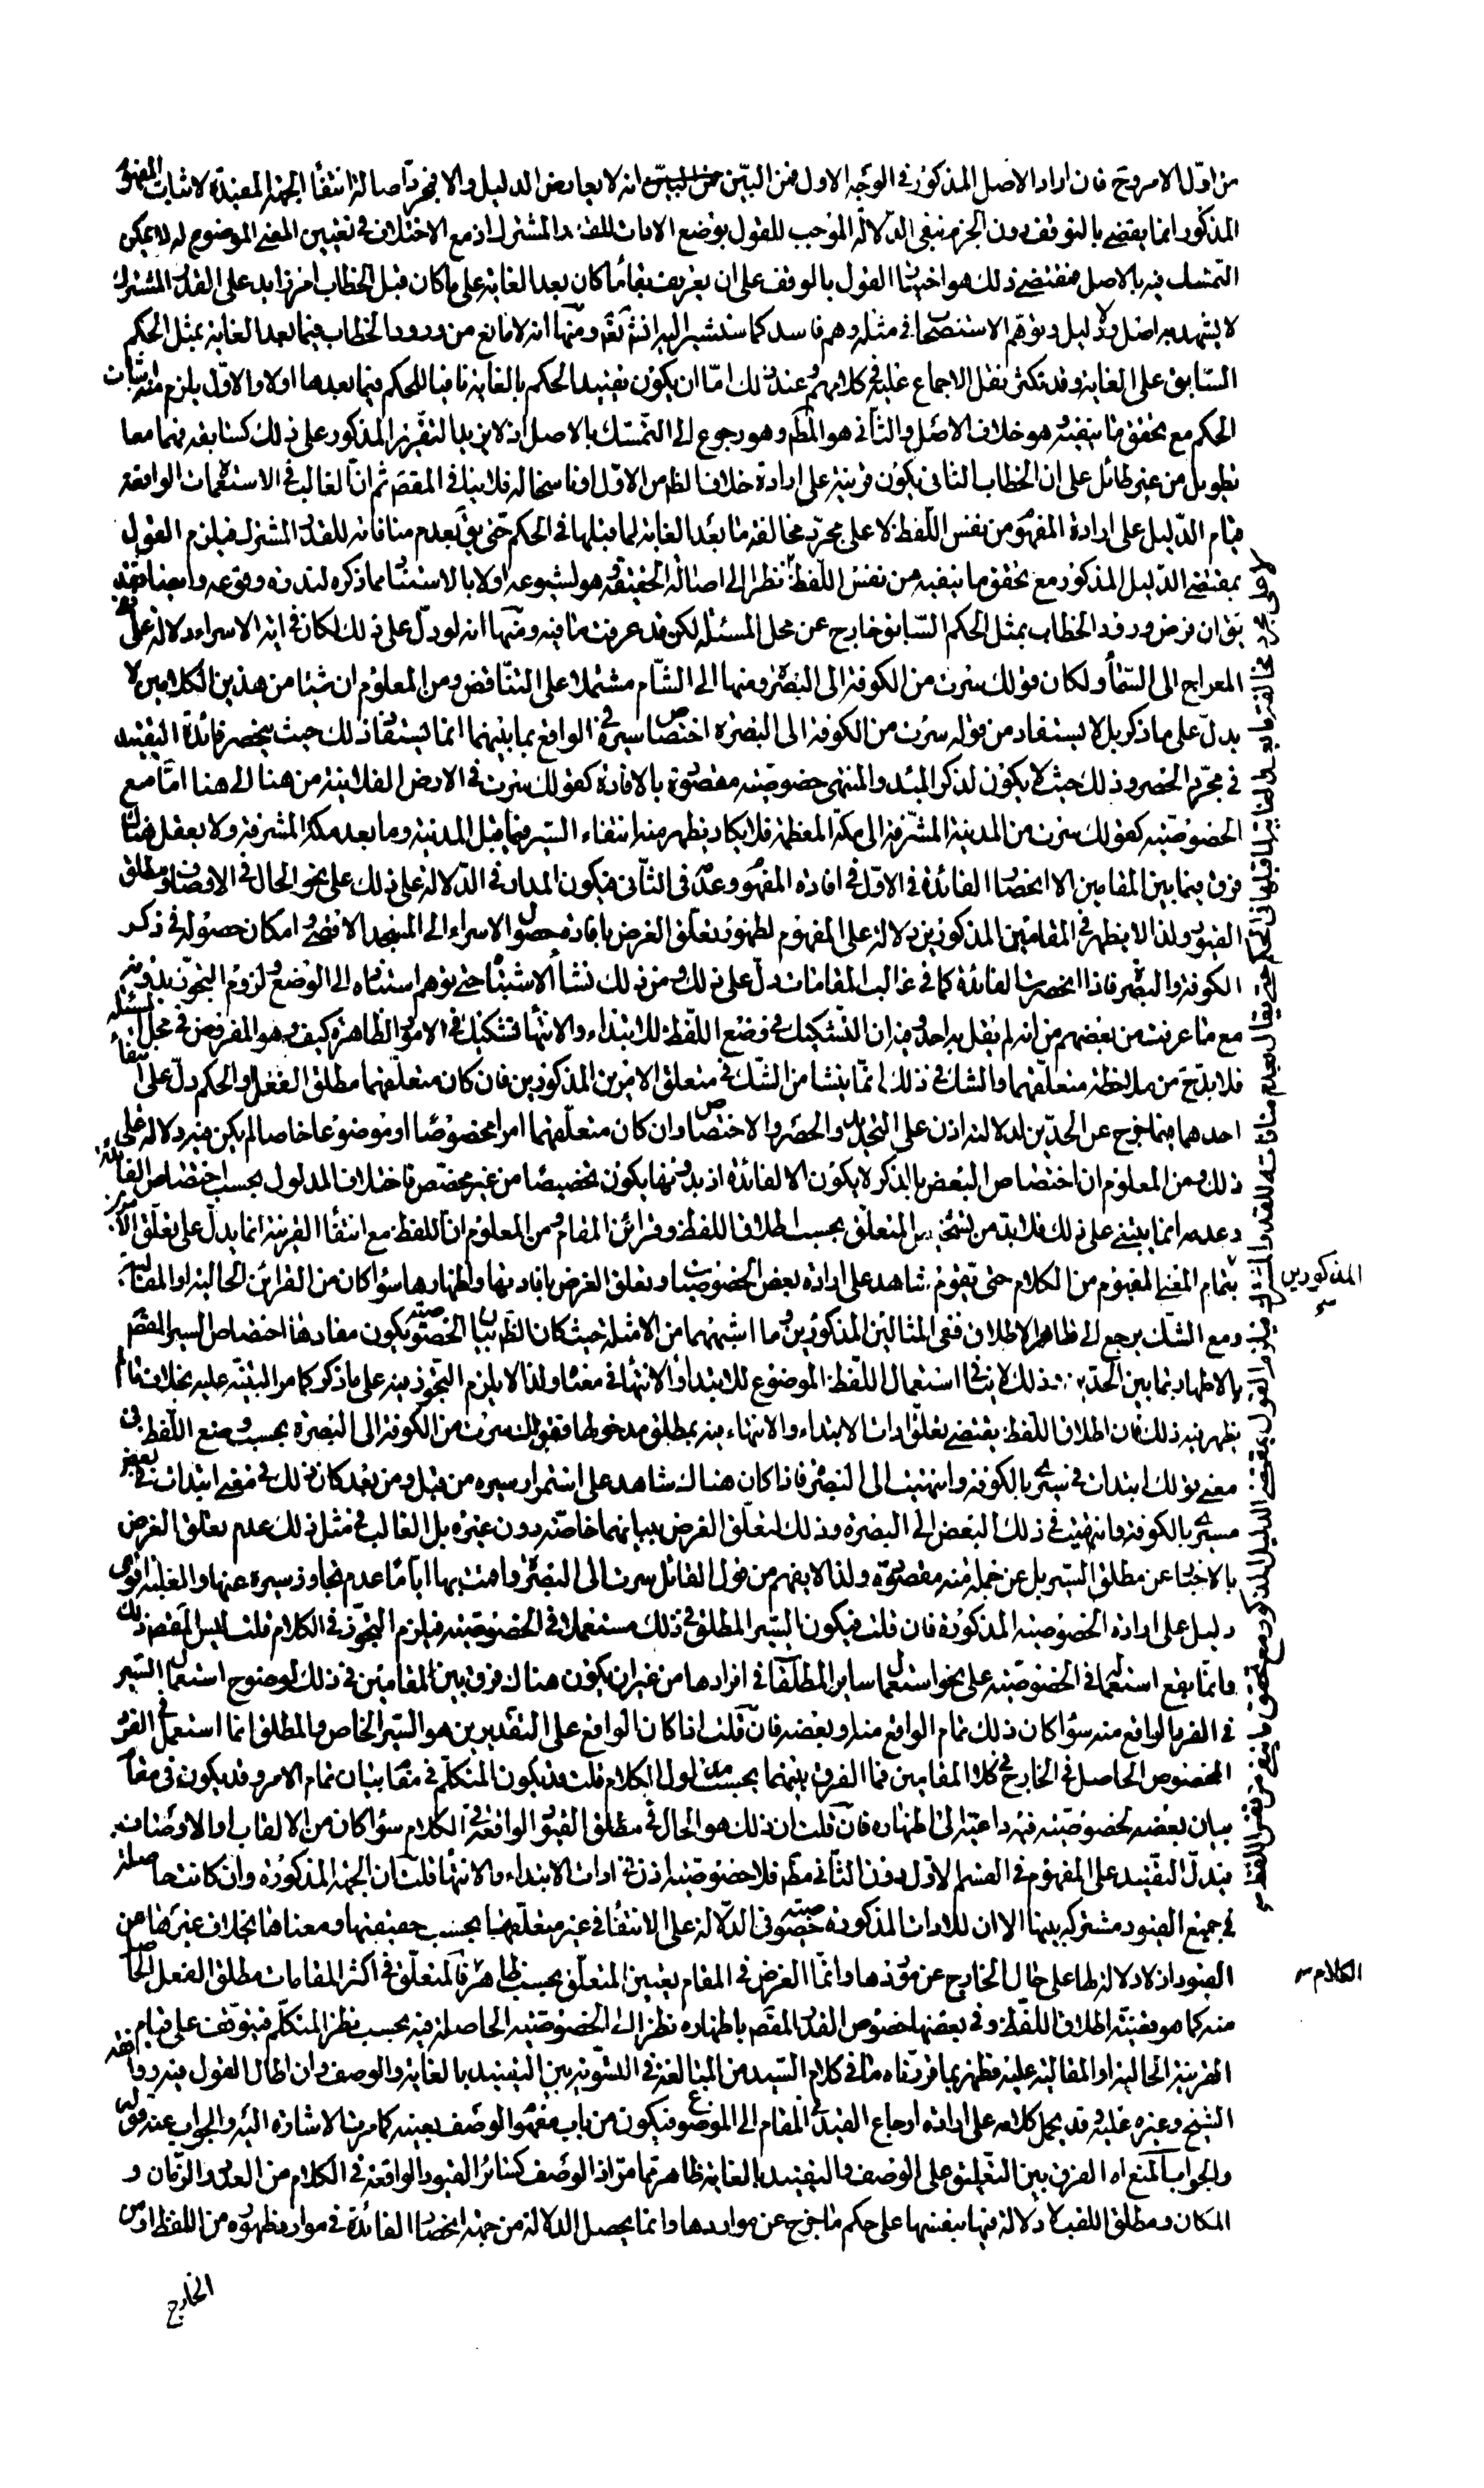 من اوّل الامر وح فان اراد الاصل المذكور فى الوجه الاول فمن البيّن انه لا يعارض الدليل والا فمجرّد اصالة انتفاء الجهة المفيدة لاثبات المفهوم
المذكور انما يقضى بالتوقف دون الجزم بنفى الدلالة الموجب للقول بوضع الادات للقدر المشترك اذ مع الاختلاف فى تعيين المعنى الموضوع له لا يمكن
التمسك فيه بالاصل فمقتضى ذلك هو اختيار القول بالوقف على ان تعريف بقاء ما كان بعد الغاية على ما كان قبل الخطاب امر زايد على القدر المشترك
لا يشهد به اصل ولا دليل وتوهّم الاستصحاب فى مثله وهم فاسد كما سنشير اليه انش تعالى ومنها انه لا مانع من ورود الخطاب فيما بعد الغاية بمثل الحكم
السّابق على الغاية وقد تكثر نقل الاجماع عليه فى كلامهم وعند ذلك امّا ان يكون تقييد الحكم بالغاية نافيا للحكم فيما بعدها اولا والاوّل يلزم منه اثبات
الحكم مع تحقق ما ينفيه وهو خلاف الاصل والثانى هو المط وهو رجوع الى التمسّك بالاصل اذ لا يزيد التقرير المذكور على ذلك كسابقه فهما معا
تطويل من غير طائل على ان الخطاب الثانى يكون قرينة على ارادة خلاف الظ من الاوّل او ناسخا له فلا ينافى المقصّ ثم انّ الغالب فى الاستعمالات الواقعة
قيام الدّليل على ارادة المفهوم من نفس اللّفظ لا على مجرّد مخالفة ما بعد الغاية لما قبلها فى الحكم حتى يق بعدم منافاته للقدر المشترك فيلزم القول
بمقتضى الدّليل المذكور مع تحقق ما ينفيه من نفس اللّفظ نظرا الى اصالة الحقيقة وهو لشيوعه اولا بالاستثناء مما ذكره لندرة وقوعه وايضا فقد
يق ان فرض ورود الخطاب بمثل الحكم السّابق خارج عن محل المسئلة لكن قد عرفت ما فيه ومنها انه لو دلّ على ذلك لكان فى اية الاسراء دلالة على نفى
المعراج الى السّماء ولكان قولك سرت من الكوفة الى البصرة ومنها الى الشّام مشتملا على التناقض ومن المعلوم ان شيئا من هذين الكلامين لا
يدلّ على ما ذكر بل لا يستفاد من قوله سرت من الكوفة الى البصرة اختصاص سيره فى الواقع بما بينهما انما يستفاد ذلك حيث ينحصر فائدة التقييد
فى مجرّد الحصر وذلك حيث لا يكون لذكر المبدء والمنتهى خصوصيّة مقصودة بالافادة كقولك سرت فى الارض الفلانية من هنا الى هنا امّا مع
الخصوصيّة كقولك سرت من المدينة المشرّفة الى مكّة المعظمة فلا يكاد يظهر منه انتفاء السّير فيما قبل المدينة وما بعد مكة المشرفة ولا يعقل هناك
فرق فيما بين المقامين الا انحصار الفائدة فى الاوّل فى افادة المفهوم وعدمه فى الثّانى فيكون المدار فى الدّلالة على ذلك على نحو الحال فى الاوصاف ومطلق
القيود ولذا لا يظهر فى المقامين المذكورين دلالة على المفهوم لظهور تعلّق الغرض بافادة حصول الاسراء الى المسجد الاقصى وامكان حصوله فى ذكر
الكوفة والبصرة فاذا انحصرت الفائدة كما فى غالب المقامات دلّ على ذلك ومن ذلك نشأ الاشتباه حتى توهم استناده الى الوضع ولزوم التجوّز بدونه
مع ما عرفت من بعضهم من انه لم يقل به احد وفيه ان التّشكيك فى وضع اللّفظ للابتداء والانتهاء تشكيك فى الامور الظاهرة كيف وهو المفروض فى محل المسئلة
فلا بدّ ح من ملاحظة متعلّقهما والشك فى ذلك انّما ينشأ من الشّك فى متعلق الامرين المذكورين فان كان متعلّقهما مطلق الفعل او الحكم دلّ على انتفاء
احدهما فيما خرج عن الحدّين لدلالته اذن على التحديد والحصر والاختصاص وان كان متعلّقهما امرا مخصوصا او موضوعا خاصا لم يكن فيه دلالة على
ذلك ومن المعلوم ان اختصاص البعض بالذكر لا يكون الا لفائدة اذ بدونها يكون تخصيصا من غير مخصّص فاختلاف المدلول بحسب اختصاص الفائدة
وعدمه انما يبتنى على ذلك فلا بدّ من تشخيص المتعلّق بحسب اطلاق اللفظ وقرائن المقام ومن المعلوم انّ اللفظ مع انتفاء القرينة انما يدلّ على تعلّق الامرين
المذكورين
بتمام المعنى المفهوم من الكلام حتى يقوم شاهد على ارادة بعض الخصوصيات وتعلق الغرض بافادتها واظهارها سواء كان من القرائن الحالية او المقالية
ومع الشّك يرجع الى ظاهر الاطلاق ففى المثالين المذكورين وما اشبههما من الامثلة حيث كان الظ بيان الخصوصية يكون مفادها اختصاص السير المقصّ
بالاظهار بما بين الحدّين وذلك لا ينافى استعمال اللّفظ الموضوع للابتداء والانتهاء فى معناه ولذا لا يلزم التجوّز فيه على ما ذكر كما مر التنبيه عليه بخلاف ما لم
يظهر فيه ذلك فان اطلاق اللّفظ يقتضى تعلّق ادات الابتداء والانتهاء فيه بمطلق مدخولها فقولك سرت من الكوفة الى البصرة بحسب وضع اللّفظ فى
معنى قولك ابتدات فى سيرى بالكوفة وانتهيت الى البصرة فاذا كان هناك شاهد على استمرار سيره من قبل ومن بعد كان ذلك فى معنى ابتدات فى بعض
مسيرى بالكوفة وانتهيت فى ذلك البعض الى البصرة وذلك لتعلّق الغرض ببيانهما خاصّة دون غيره بل الغالب فى مثل ذلك عدم تعلق الغرض
بالاخبار عن مطلق السّير بل عن جملة منه مقصودة ولذا لا يفهم من قول القائل سرت الى البصرة واقمت بها اياما عدم تجاوز سيره عنها والغلبة اقوى
دليل على ارادة الخصوصية المذكورة فان قلت فيكون السّير المطلق فى ذلك مستعملا فى الخصوصيّة فيلزم التجوّز فى الكلام قلت ليس المقصّ ذلك
وانّما يقع استعماله فى الخصوصيّة على نحو استعمال ساير المطلقات فى افرادها من غير ان يكون هناك فرق بين المقامين فى ذلك لوضوح استعمال السّير
فى الفرد الواقع منه سواء كان ذلك تمام الواقع منه او بعضه فان قلت اذا كان الواقع على التقديرين هو السّير الخاص والمطلق انما استعمل فى الفرد
المخصوص الحاصل فى الخارج فى كلا المقامين فما الفرق بينهما بحسب مدلول الكلام قلت قد يكون المتكلّم فى مقام بيان تمام الامر وقد يكون فى مقام
بيان بعضه لخصوصيّة فيه داعية الى اظهاره فان قلت ان ذلك هو الحال فى مطلق القيود الواقعة فى الكلام سواء كان من الالقاب او الاوصاف
فيدلّ التقييد على المفهوم فى القسم الاوّل دون الثّانى مط فلا خصوصيّة اذن فى ادات الابتداء والانتهاء قلت ان الجهة المذكورة وان كانت حاصلة
فى جميع القيود مشتركة بينها الا ان للادات المذكورة خصوصية فى الدّلالة على الانتفاء فى غير متعلّقهما بحسب حقيقتها ومعناها بخلاف غيرها من
القيود اذ لا دلالة لها على حال الخارج عن موردها وانّما الغرض فى المقام تعيين المتعلّق بحسب ظاهر الكلام فالمتعلّق فى اكثر المقامات مطلق الفعل الحاصل
منه كما هو قضيّة اطلاق اللّفظ وفى بعضها خصوص القدر المقصّ باظهاره نظرا الى الخصوصيّة الحاصلة فيه بحسب نظر المتكلّم فيتوقّف على قيام
القرينة الحالية او المقالية عليه فظهر بما قررّناه ما فى كلام السّيد من المبالغة فى التسّوية بين التقييد بالغاية والوصف وان اطال القول فيه ووافقه
الشيخ وغيره عليه وقد يحمل كلامه على ارادة ارجاع القيد فى المقام الى الموضوع فيكون من باب مفهوم الوصف بعينه كما مرت الاشارة اليه والجواب عنه قوله
والجواب المنع اه الفرق بين التّعليق على الوصف والتقييد بالغاية ظاهر ممّا مرّ اذ الوصف كسائر القيود الواقعة فى الكلام من العدد والزّمان و
المكان ومطلق اللقب لا دلالة فيها بنفسها على حكم ما خرج عن مواردها وانما يحصل الدلالة من جهة انحصار الفائدة فى موارد ظهوره من اللفظ او من
الخارج
لا على مجرد مخالفة ما بعد الغاية لما قبلها فى الحكم حتى يقال بعدم منافاته للقدر المشترك فيلزم القول بمقتضى الدليل المذكور مع تحقق ما ينفيه من نفس اللفظ
الكلام